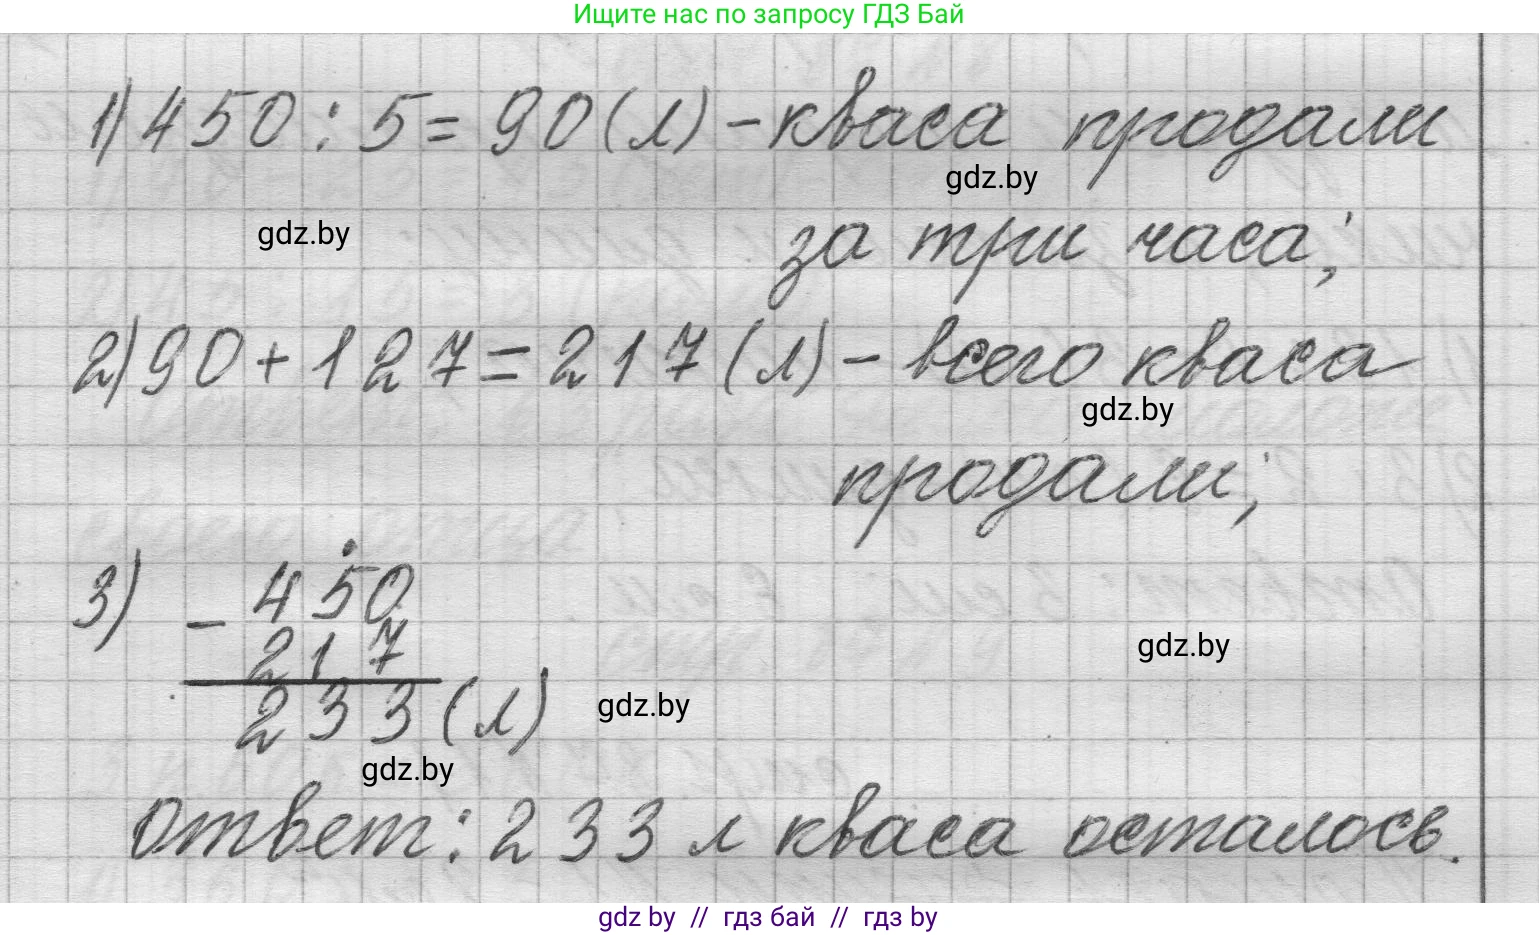 Ищите нас по запросу ГДЗ Бай
1) 450 : 5 = 90 (л) - кваса продали
gdz.by
gdz.by
за три часа;
2) 90 + 127 = 217 (л) - всего кваса
gdz.by
продали;
3) - 450
217
gdz.by
233 (л)
gdz.by
gdz.by
Ответ: 233 л кваса осталось.
gdz by // гдз бай // гдз by